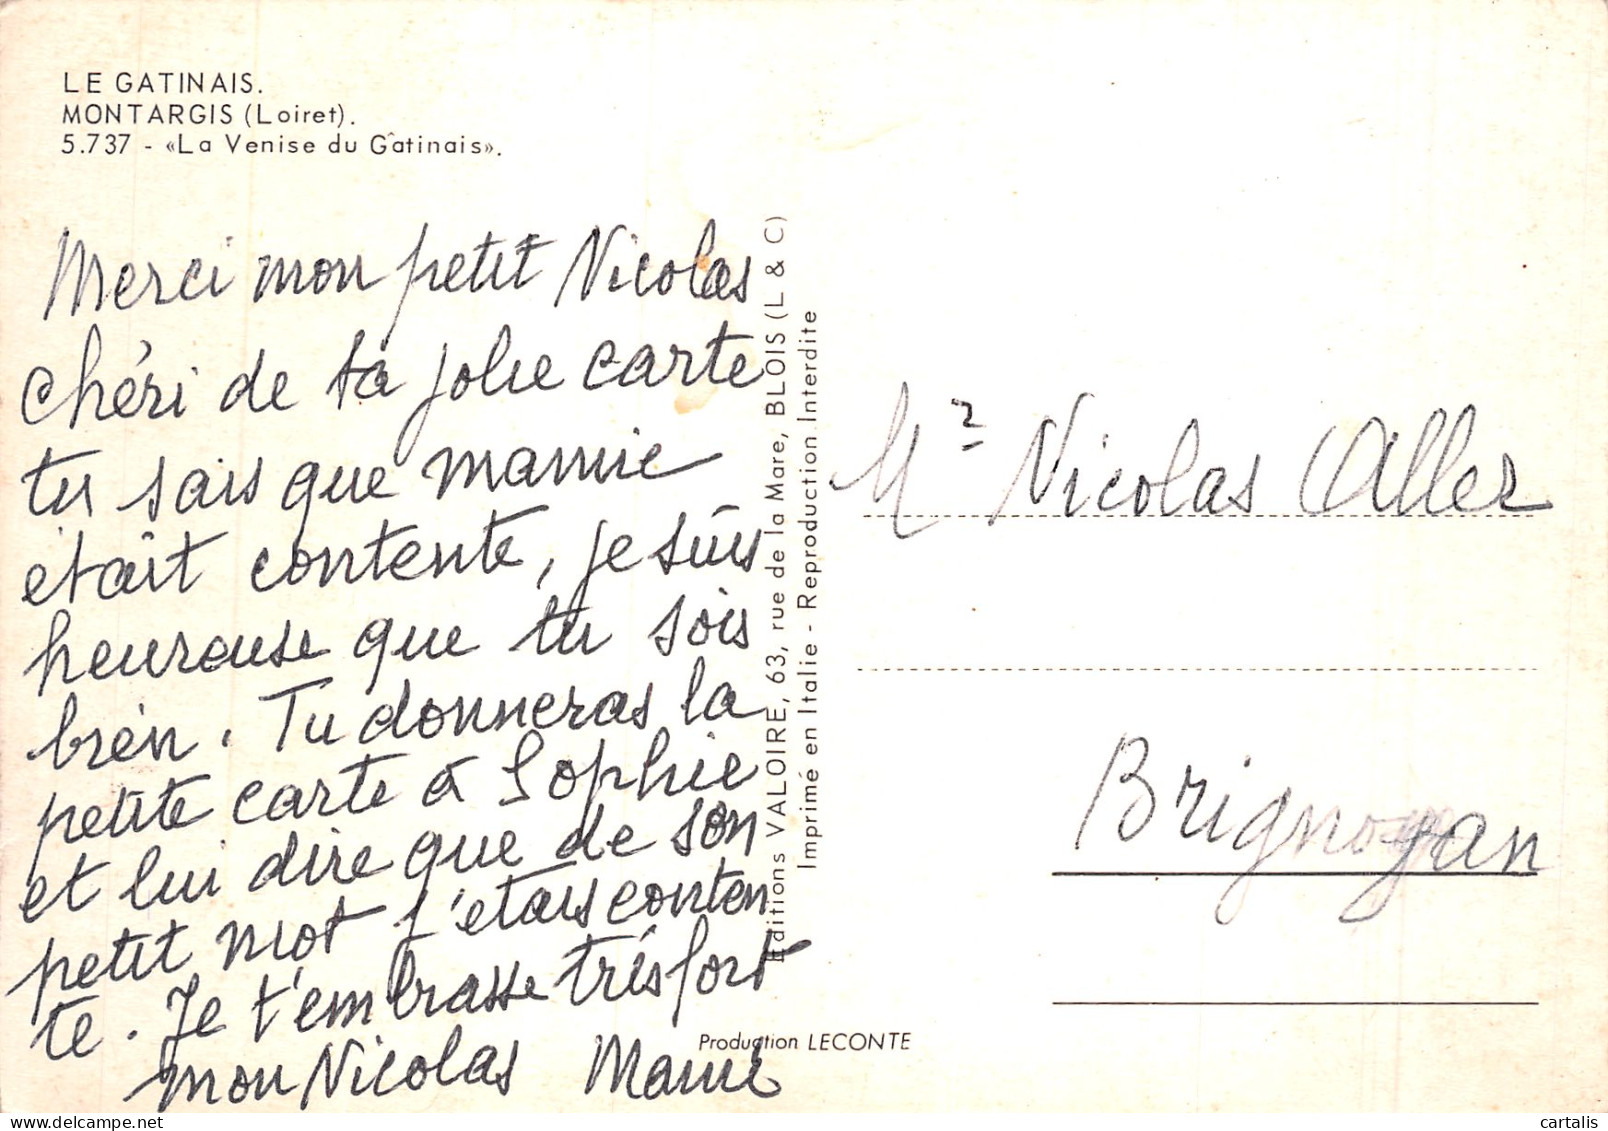 LE GATINAIS.
MONTARGIS (Loiret).
5.737 - «La Venise du Gâtinais».
Merci mon petit Nicolas
chéri de ta jolie carte
tu sais que mamie
etait contente, je suis
heureuse que tu sois
bien. Tu donneras la
petite carte à Sophie
et lui dire que de son
petit mot j'etais conten
te. Je t'embrasse très fort
mon Nicolas Mamie
Editions VALOIRE, 63, rue de la Mare, BLOIS (L & C)
Imprimé en Italie - Reproduction Interdite
Production LECONTE
Mr Nicolas Aller
Brignogan
cartalis